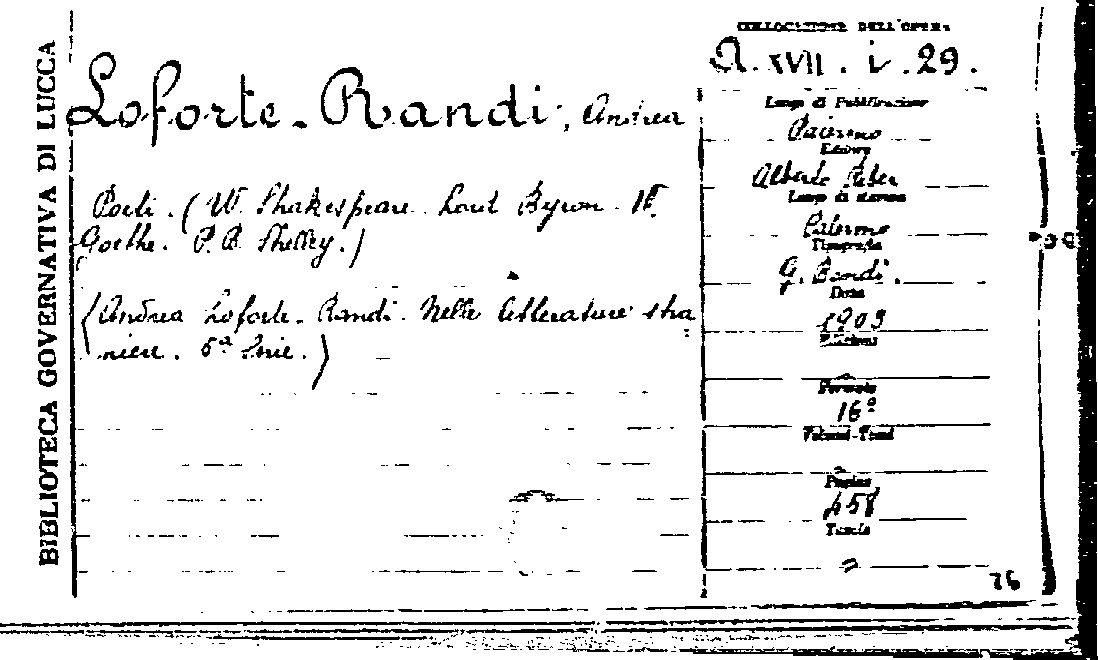 BIBLIOTECA GOVERNATIVA DI LUCCA
COLLOCAZIONE DELL'OPERA
A. XVII. i. 29.
Loforte-Randi, Andrea
Poeti. (W. Shakespeare. Lord Byron.
Goethe. P. B. Shelley.)
(Andrea Loforte-Randi. Nelle letterature stra
niere. 5ª Serie.)
Luogo di Pubblicazione
Palermo
Editore
Alberto Reber
Luogo di stampa
Palermo
Tipografia
G. Bondi.
Data
1903
Edizione
Formato
16º
Volumi-Tomi
Pagine
458
Tavole
76